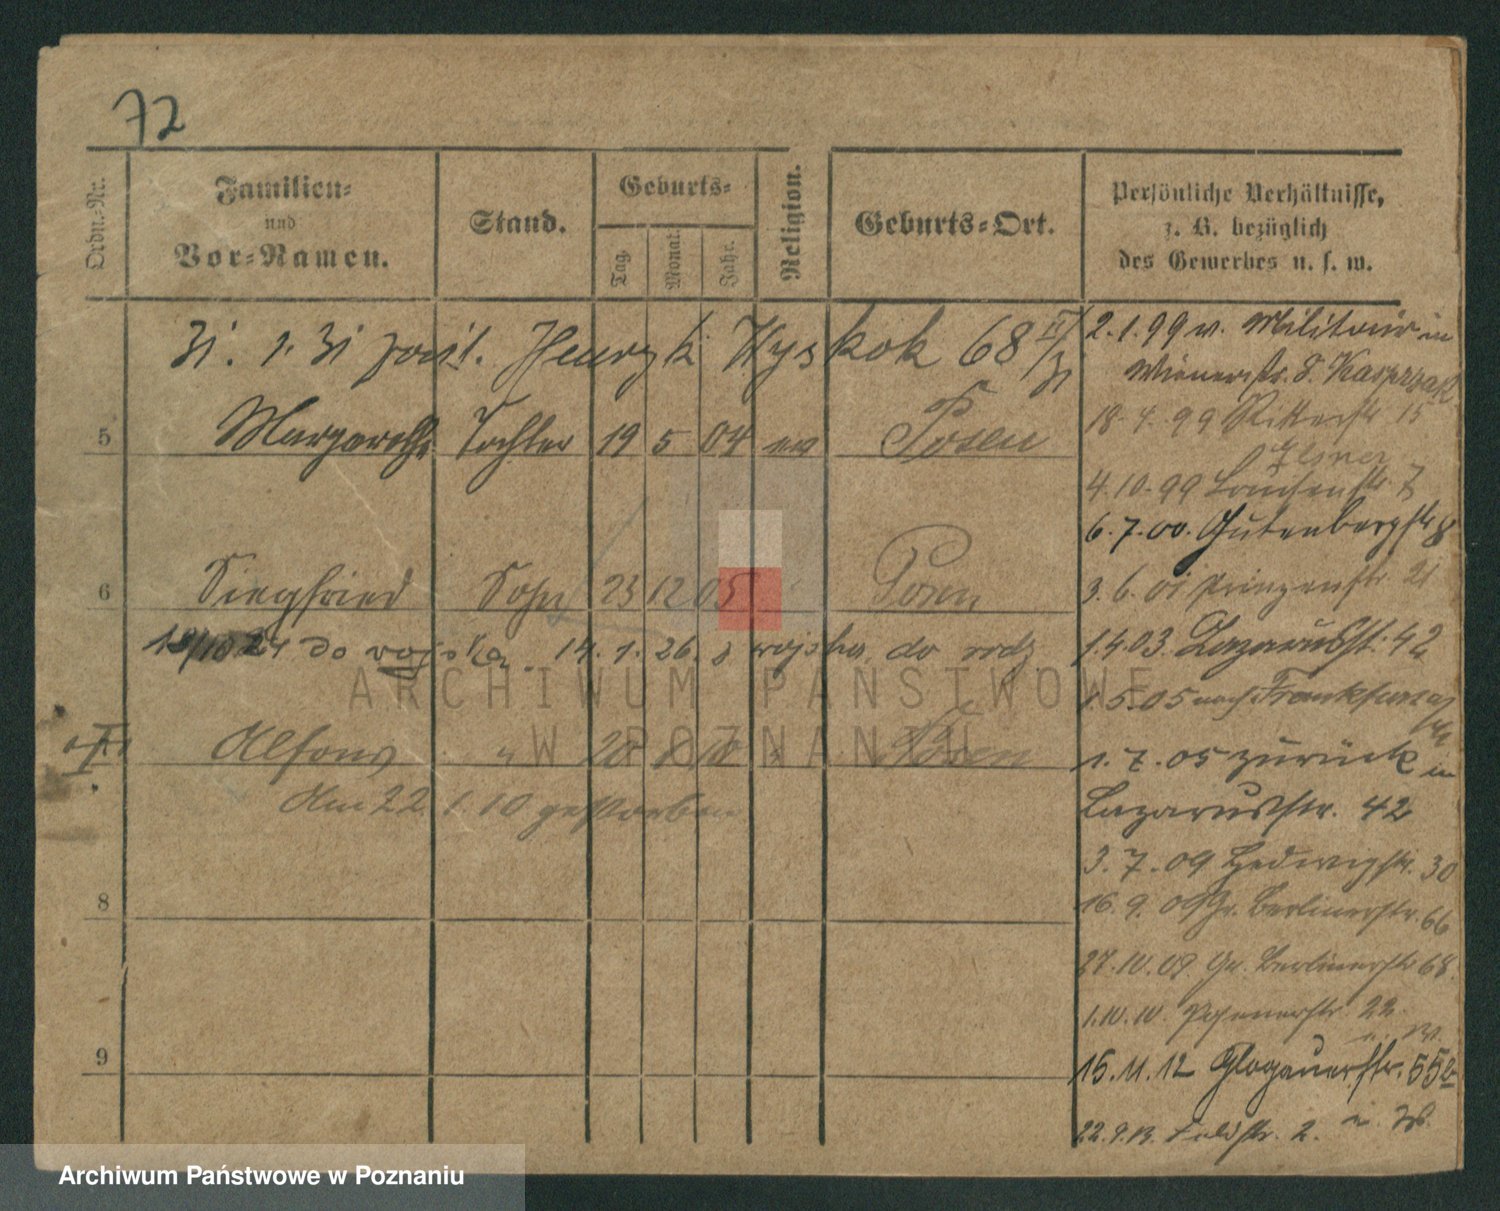 72
Ordn.-Nr.
Familien-
und
Vor-Namen.
Stand.
Geburts-
Tag.
Monat.
Jahr.
Religion.
Geburts-Ort.
Persönliche Verhältnisse,
z. B. bezüglich
des Gewerbes u. s. w.
31. 1. 31 Henryk Wyskok 68
5 Margarethe Tochter 19 5 04 ev Posen
6 Siegfried Sohn 23 12 05 Posen
24 do wojska. 14. 1. 26. z wojska do rodz.
Alfons " 20 1 10 Posen
Am 22. 1. 10 gestorben
8
9
2.1.99 v. Militair in
Wienerstr. 8. Kasprzak
18.4.99 Ritterstr 15
Elsner
4.10.99 Louisenstr. 7
6.7.00. Gutenbergstr 8
3.6.01 Prinzenstr 21
1.4.03. Lazarusstr. 42
1.5.05 nach Frankfurt a/
1.7.05 zurück in
Lazarusstr. 42
3.7.09 Hedwigstr. 30
16.9.09 Gr. Berlinerstr. 66
27.10.09 Gr. Berlinerstr 68.
1.10.10. Posenerstr. 22.
15.11.12 Glogauerstr. 55
22.9.13. Feldstr. 2.
ARCHIWUM PAŃSTWOWE
W POZNANIU
Archiwum Państwowe w Poznaniu